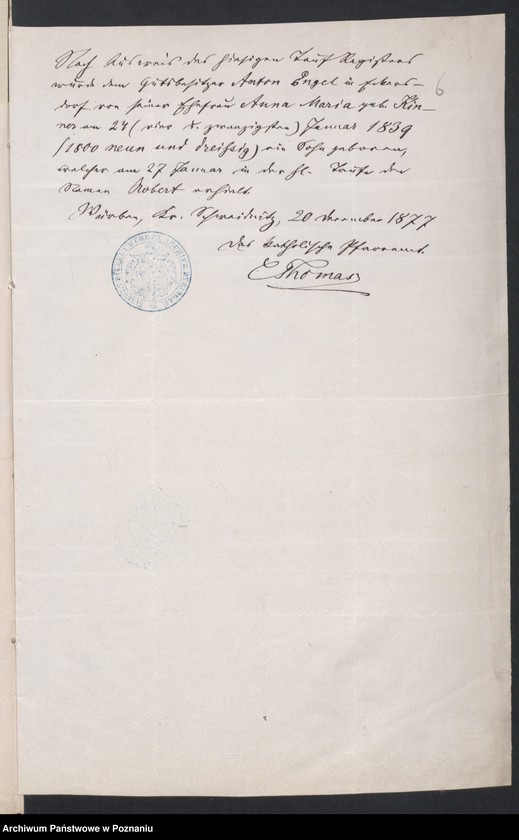 Nach Ausweis des hiesigen Tauf Registers
wurde dem Gutsbesitzer Anton Engel in Eckers-
dorf von seiner Ehefrau Anna Maria geb. Kin-
ner am 24 (vier u. zwanzigsten) Januar 1839
(1800 neun und dreißig) ein Sohn geboren,
welcher am 27 Januar in der hl. Taufe den
Namen Robert erhielt.
Würben, Kr. Schweidnitz, 20 December 1877
Das katholische Pfarramt.
CThomas
6
Archiwum Państwowe w Poznaniu